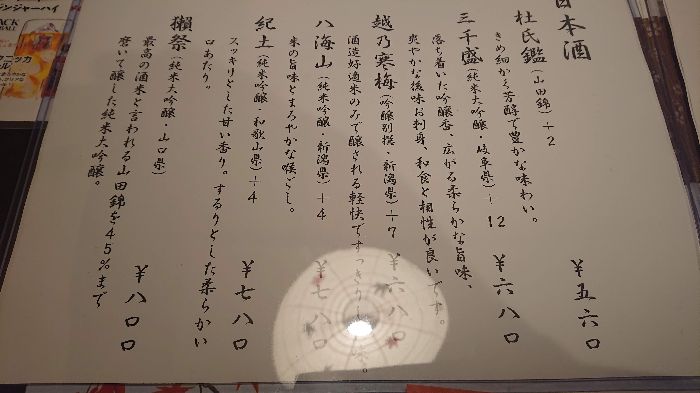 日本酒
杜氏鑑(山田錦)+2
きめ細かく芳醇で豊かな味わい。
¥五六〇
三千盛(純米大吟醸・岐阜県)+12
落ち着いた吟醸香、広がる柔らかな旨味、
爽やかな後味お刺身、和食と相性が良いです。
¥六八〇
越乃寒梅(吟醸別撰・新潟県)+7
酒造好適米のみで醸される軽快ですっきり
¥六八〇
八海山(純米吟醸・新潟県)+4
米の旨味とまろやかな喉ごし。
¥七八〇
紀土(純米吟醸・和歌山県)+4
スッキリとした甘い香り。するりとした柔らかい
口あたり。
¥七八〇
獺祭(純米大吟醸・山口県)
最高の酒米と言われる山田錦を45%まで
磨いて醸した純米大吟醸。
¥八〇〇
ジンジャーハイ